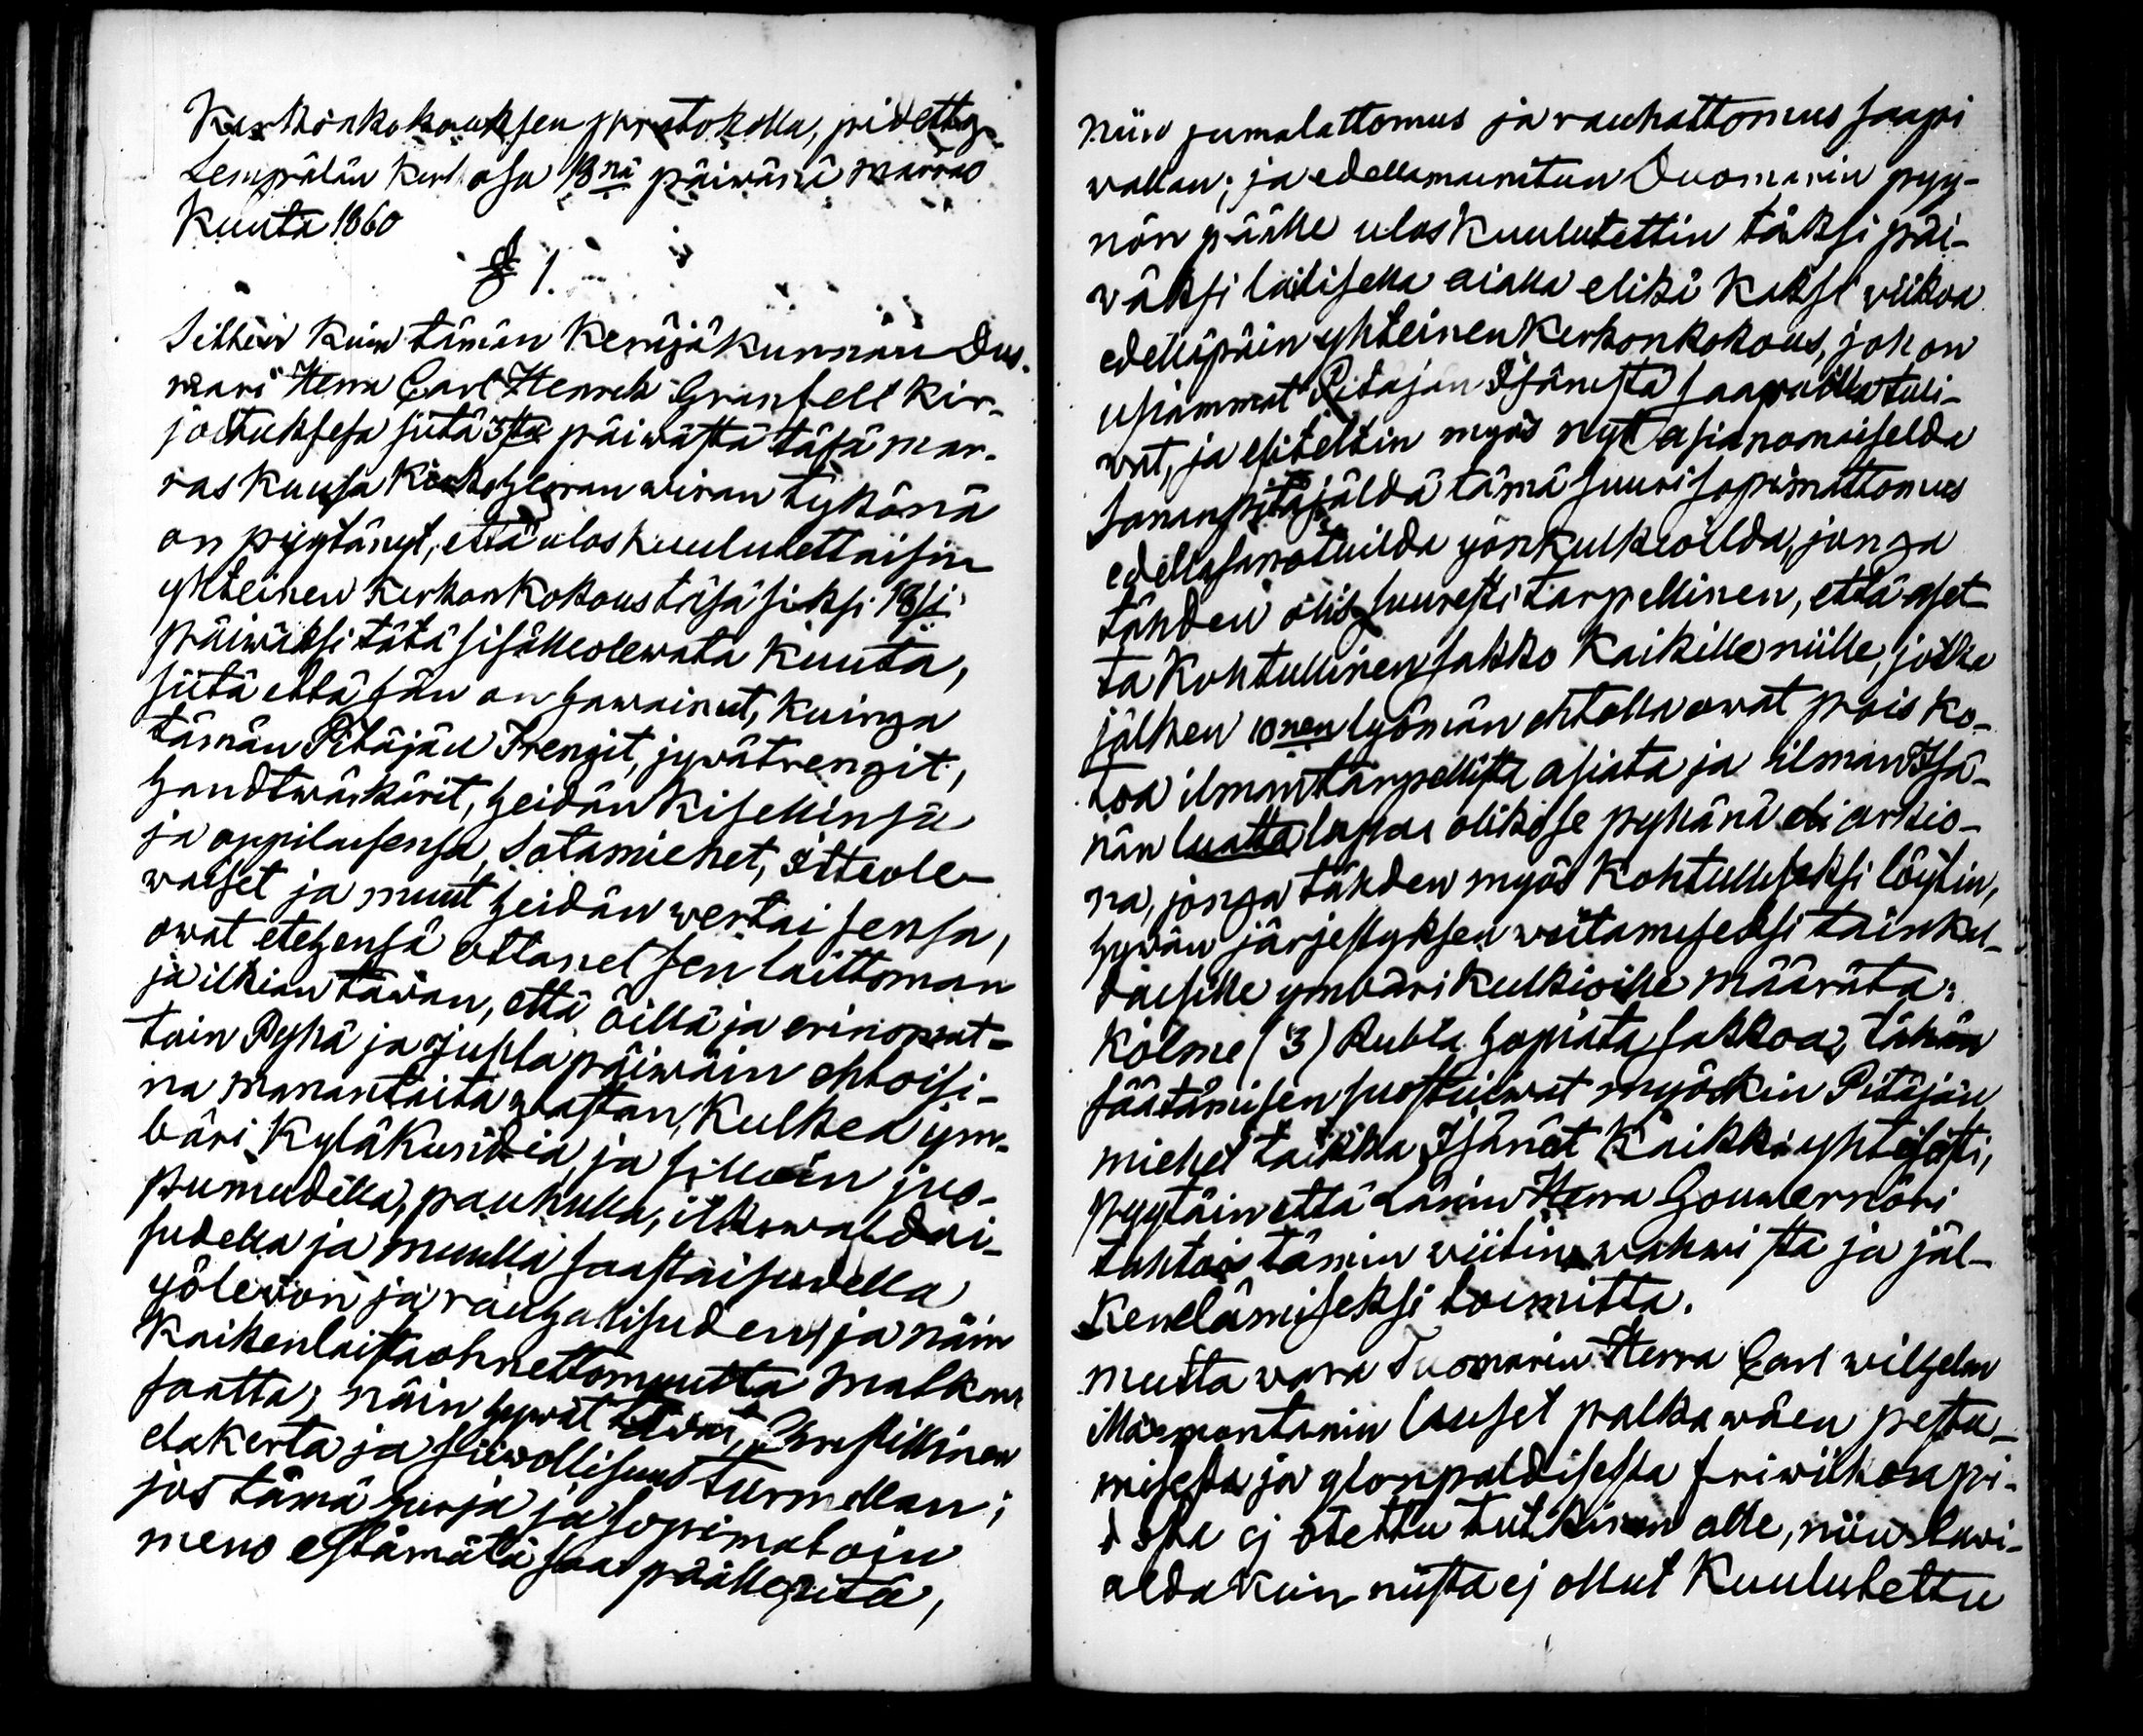 Kirkonkokouksen prutokolla, pidetty
Lempälän Kirkosa 18nä päiwänä marras
Kuuta 1860
§ 1.
Sitten Kuin tämän Keräjäkunnan Duo-
mari Herra Carl Henrik Grenfell Kir-
joituksesa siitä 3sta päiwästä täsä mar-
raskuusa Kirkoherran wiran tykönä
on pyytänyt, että uloskuulutettaisin
yhteinen Kirkonkokous täsä siksi 18si
päiwäksi tätä sisälleolewata Kuuta,
siitä että hän on hawainut, Kuinga
tämän Pitäjän Trengit, jywätrengit,
handtwärkärit, heidän Kisellinsä
ja oppilaisensa, Sotamiehet, Itteole-
waiset ja muut heidän wertaisensa,
owat etehensä ottanet sen laittoman
ja ilkian tawan, että öillä ja erinomat-
tain Pyhä ja Juhlapäiwäin ehtoisi-
na manantaita wastan, Kulkea ym-
bäri Kyläkundia, ja silloin juo-
pumudella, pauhulla, ilkiwaldai-
sudella ja muulla saastaisudella
yölewon ja rauhalisuden, ja näin
Kaikenlaista onnettomuutta matkan
saatta; näin hywät tawat, Christillinen
elakerta ja siiwollisuus turmellan;
jos tämä hurja ja sopimatoin
meno estämätä saa päällepitä,
niin jumalattomus ja rauhattomus saapi
wallan; ja edellämainitun Duomarin pyy-
nön päälle uloskuulutettin täksi päi-
wäksi lailisella aialla elikä Kaksi wiikoa
edelläpäin yhteinen Kirkonkokous, johon
usiammat Pitäjän Isänistä saapuilla tuli-
wat, ja esiteltin myös nyt asianomaiselda
Sananpitäjäldä tämä suuri sopimattomus
edelläsanotuilda yönkulkioilda, jonga
tähden olis suuresti tarpellinen, että aset-
ta Kohtullinen sakko Kaikille niille, jotka
jälken 10nen lyömän ehtolla owat pois ko-
toa ilman tarpellista asiata ja ilman Isä-
nän luatta lupaa olikose pyhänä eli arkio-
na, jonga tähden myös Kohtulliseksi löytin,
hywän järjestyksen woitamiseksi tainkal-
daisille ymbärikulkioille määrätä:
Kolme (3) Rubla hopiata sakkoa; tähän
säätämisen suostuiwat myöskin Pitäjän
miehet taikka Isänät Kaikki yhteisesti,
pyytäin että Länin Herra Gouwernöri
tahtois tämän wiitin wahwista ja jäl-
kenelämiseksi toimitta.
mutta wara Tuomarin Herra Carl wilhelm
Masmontanin lauset palkawäen pesta-
misestä ja ylönpaldisesta friwiikon pi-
dosta ej otettu tutkinon alle, niin slawi-
alda kuin niistä ej ollut Kuulutettu